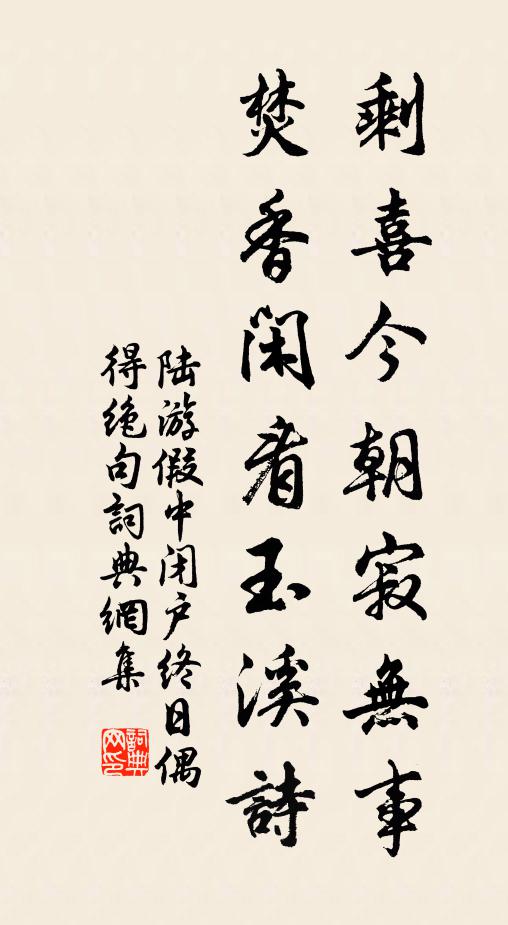 剩喜今朝寂無事
焚香閑看玉溪詩
陆游假中闭户终日偶
得绝句詞典網集
詞典网印